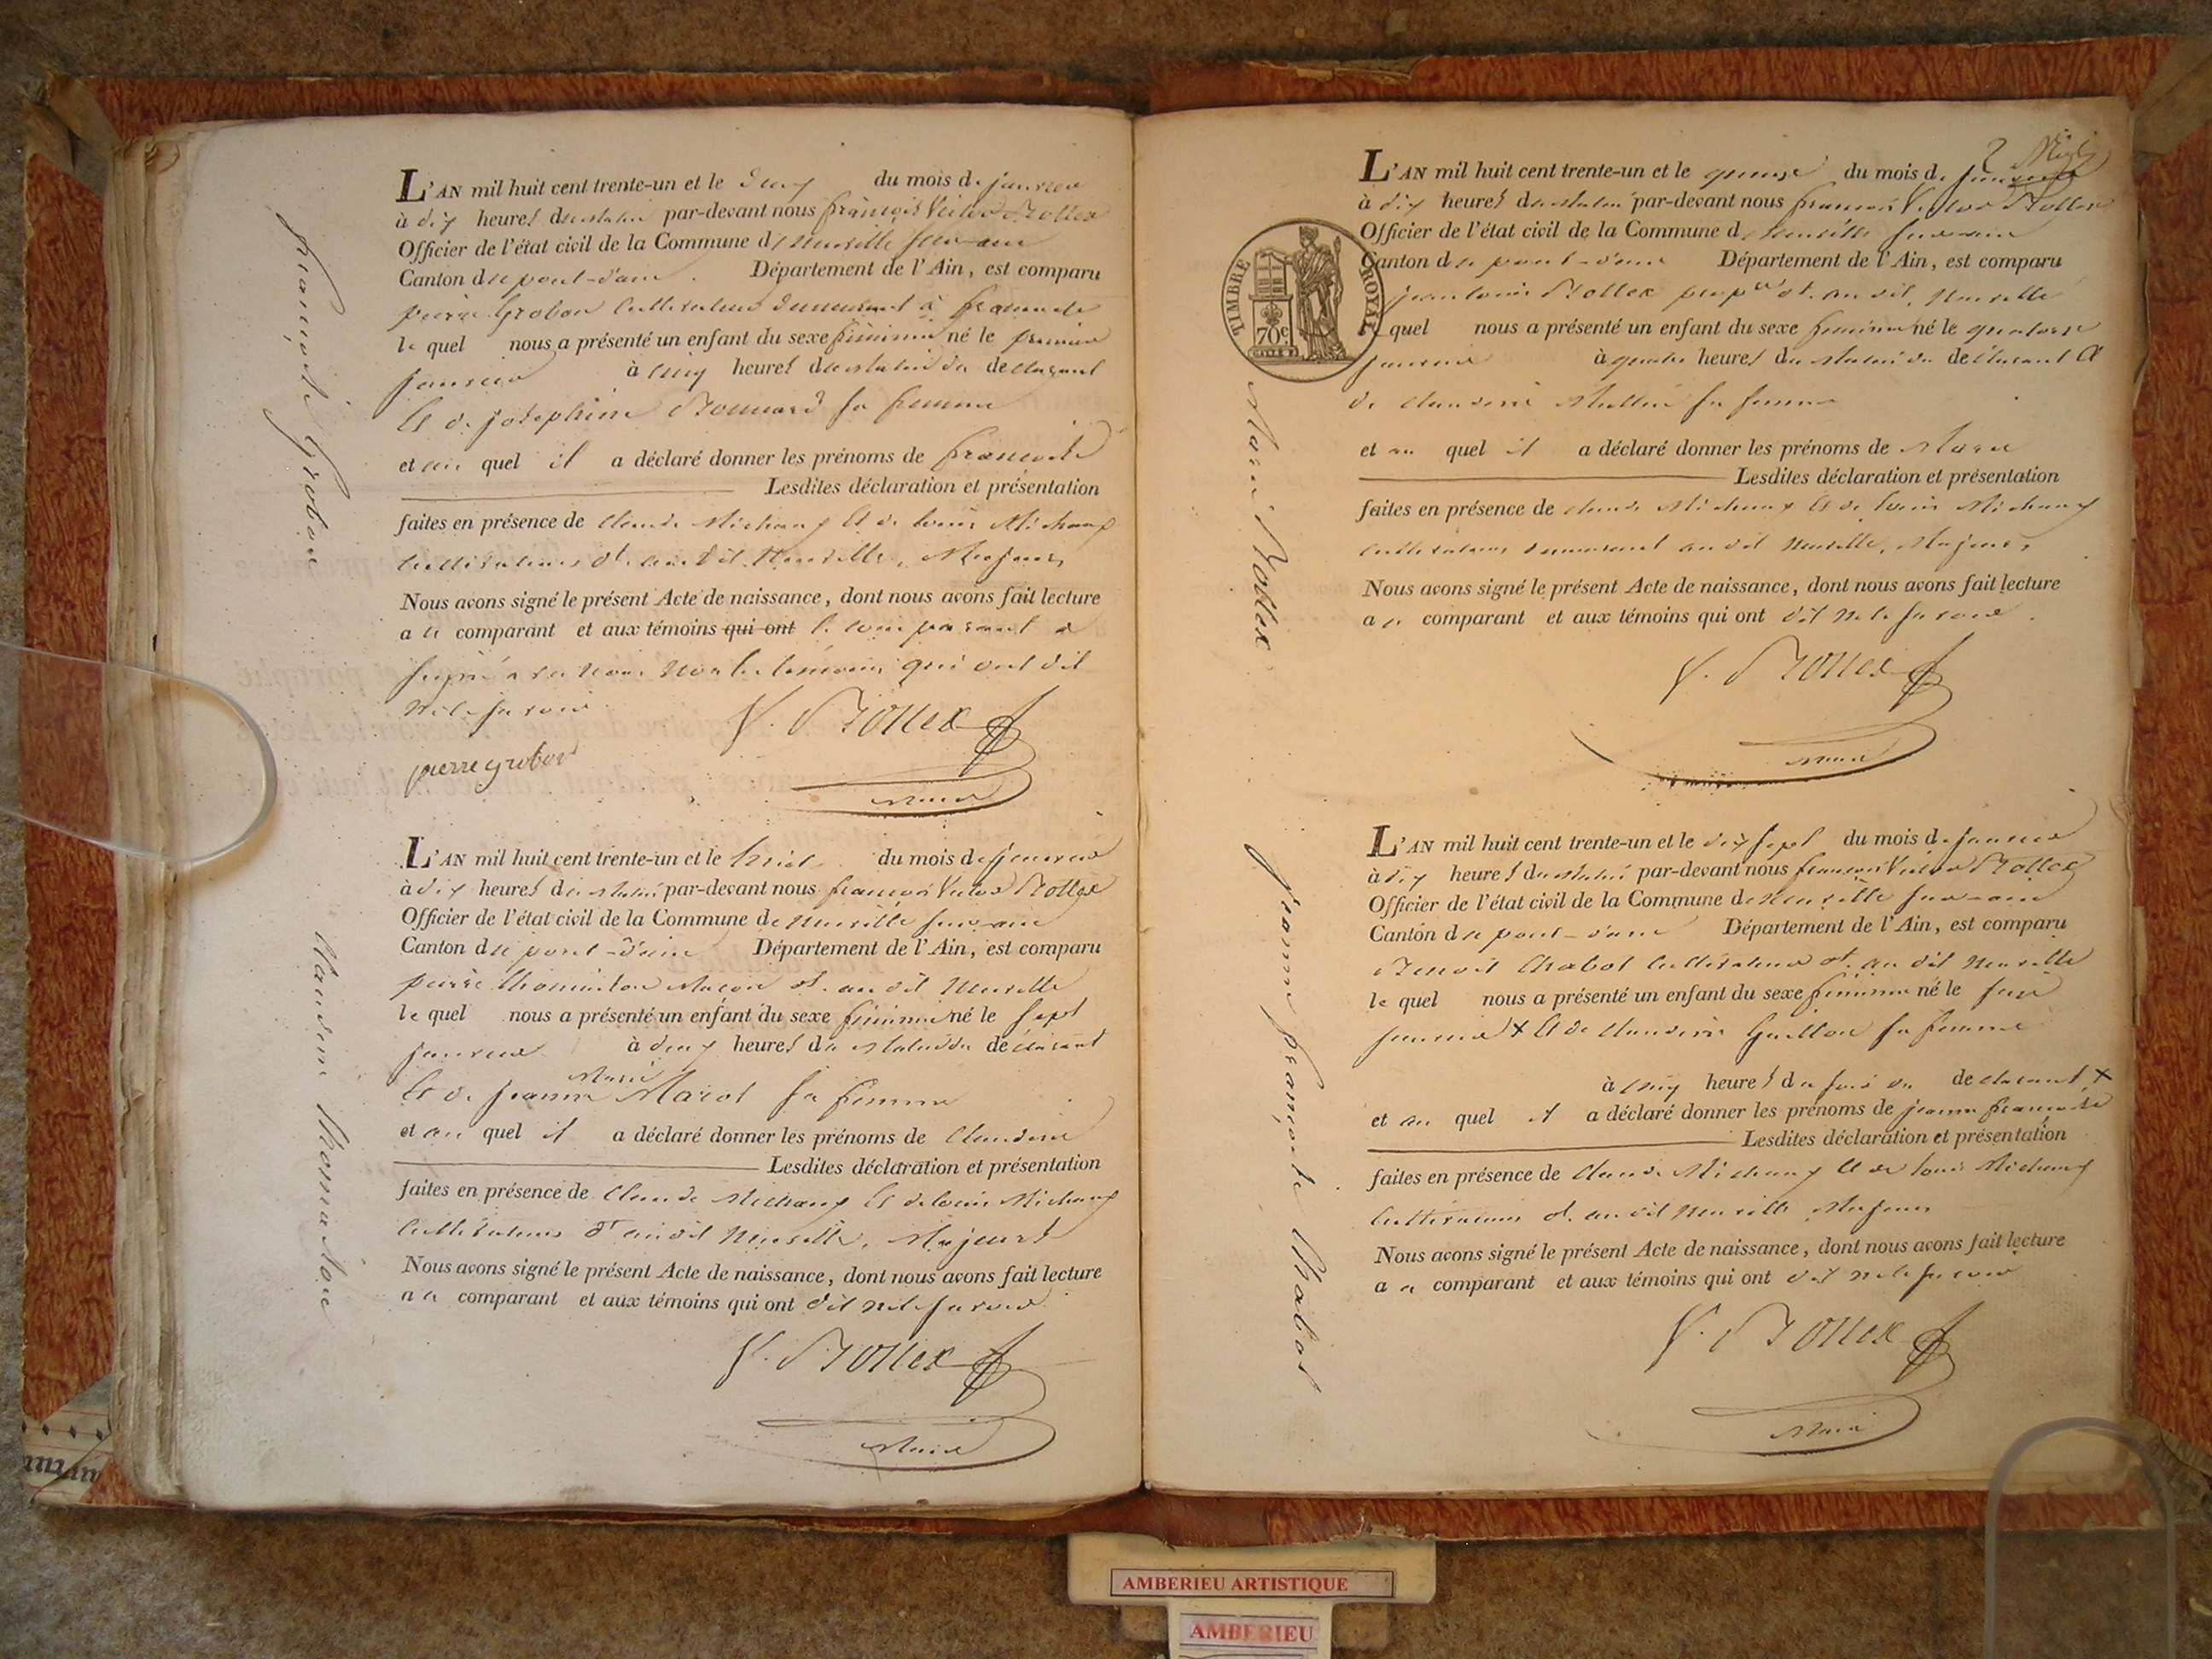 françoise Grobon
L'AN mil huit cent trente-un et le deux du mois de janvier
à dix heures du matin par-devant nous françois Victor Bollex
Officier de l'état civil de la Commune de Neuville sur ain
Canton de pont-d'ain Département de l'Ain, est comparu
pierre Grobon Cultivateur demeurant à
le quel nous a présenté un enfant du sexe féminin né le premier
janvier à cinq heures du matin du declarant
Et de josephine Bonnard sa femme
et au quel il a déclaré donner les prénoms de françoise
Lesdites déclaration et présentation
faites en présence de claude Michaux Et de louis Michaux
Cultivateurs dt. au dit Neuville, Majeurs
Nous avons signé le présent Acte de naissance, dont nous avons fait lecture
au comparant et aux témoins qui ont le comparant a
signé avec nous non les témoins qui ont dit
ne le savoir
V. Bollex
pierre grobon
Maire
Claudine Thomindon
L'AN mil huit cent trente-un et le huit du mois de janvier
à dix heures du matin par-devant nous françois Victor Bollex
Officier de l'état civil de la Commune de Neuville sur ain
Canton de pont-d'ain Département de l'Ain, est comparu
pierre Maçon dt. au dit Neuville
le quel nous a présenté un enfant du sexe féminin né le sept
janvier à deux heures du matin du déclarant
Marie
Et de jeanne Marot sa femme
et au quel il a déclaré donner les prénoms de Claudine
Lesdites déclaration et présentation
faites en présence de Claude Michaux Et de louis Michaux
Cultivateurs dt au dit Neuville, Majeurs
Nous avons signé le présent Acte de naissance, dont nous avons fait lecture
au comparant et aux témoins qui ont dit ne le savoir
V. Bollex
Maire
2
TIMBRE ROYAL
70c
Marie Bollex
L'AN mil huit cent trente-un et le quinze du mois de janvier
à dix heures du matin par-devant nous françois Victor Bollex
Officier de l'état civil de la Commune de Neuville sur ain
Canton de pont-d'ain Département de l'Ain, est comparu
jean louis Bollex dt. au dit Neuville
le quel nous a présenté un enfant du sexe féminin né le quatorze
janvier à quatre heures du matin du déclarant Et
de claudine sa femme
et au quel il a déclaré donner les prénoms de Marie
Lesdites déclaration et présentation
faites en présence de claude Michaux Et de louis Michaux
cultivateurs demeurant au dit Neuville, Majeurs
Nous avons signé le présent Acte de naissance, dont nous avons fait lecture
au comparant et aux témoins qui ont dit ne le savoir
V. Bollex
Maire
jeanne françoise Chabot
L'AN mil huit cent trente-un et le dix sept du mois de janvier
à dix heures du matin par-devant nous françois Victor Bollex
Officier de l'état civil de la Commune de Neuville sur ain
Canton de pont-d'ain Département de l'Ain, est comparu
Benoit Chabot Cultivateur dt. au dit Neuville
le quel nous a présenté un enfant du sexe féminin né le seize
janvier + Et de claudine Guillon sa femme
à cinq heures du soir du declarant +
et au quel il a déclaré donner les prénoms de jeanne françoise
Lesdites déclaration et présentation
faites en présence de Claude Michaux Et de louis Michaux
Cultivateurs dt. au dit Neuville Majeurs
Nous avons signé le présent Acte de naissance, dont nous avons fait lecture
au comparant et aux témoins qui ont dit ne le savoir
V. Bollex
Maire
AMBERIEU ARTISTIQUE
AMBERIEU